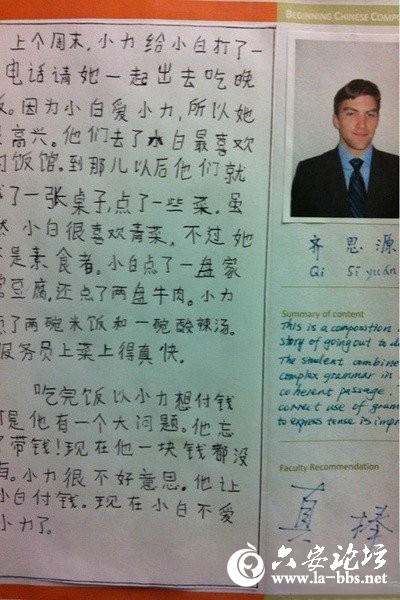 上个周末,小力给小白打了一
电话请她一起出去吃晚
。因为小白爱小力,所以她
高兴。他们去了小白最喜欢
的饭馆.到那儿以后他们就
了一张桌子,点了一些菜。虽
然小白很喜欢青菜,不过她
是素食者。小白点了一盘家
常豆腐,还点了两盘牛肉。小力
点了两碗米饭和一碗酸辣汤。
服务员上菜上得真快。
吃完饭以小力想付钱
可是他有一个大问题。他忘
了带钱!现在他一块钱都没
有。小力很不好意思。他让
小白付钱。现在小白不爱
小力了。
BEGINNING CHINESE
齐思源
Qi Sīyuán
Summary of content
This is a composition
story of going out to
The student
complex grammar in
coherent passage.
correct use of
to express tense is
Faculty Recommendation
真棒
六安论坛
www.la-bbs.net